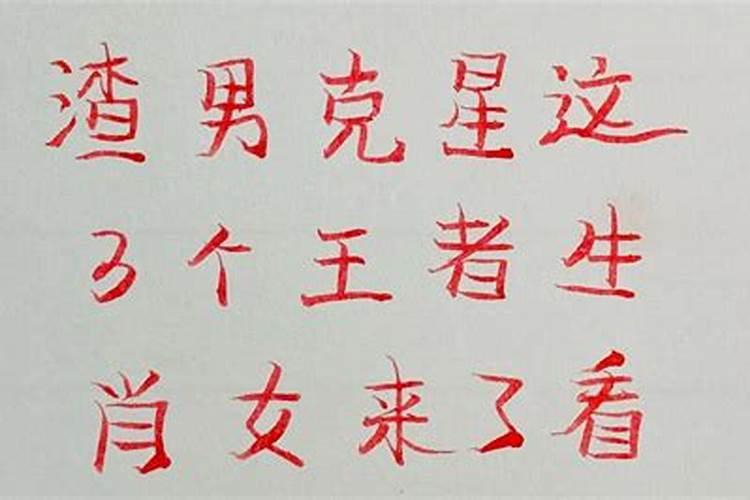 渣男克星这
3个王者生
肖女来了看